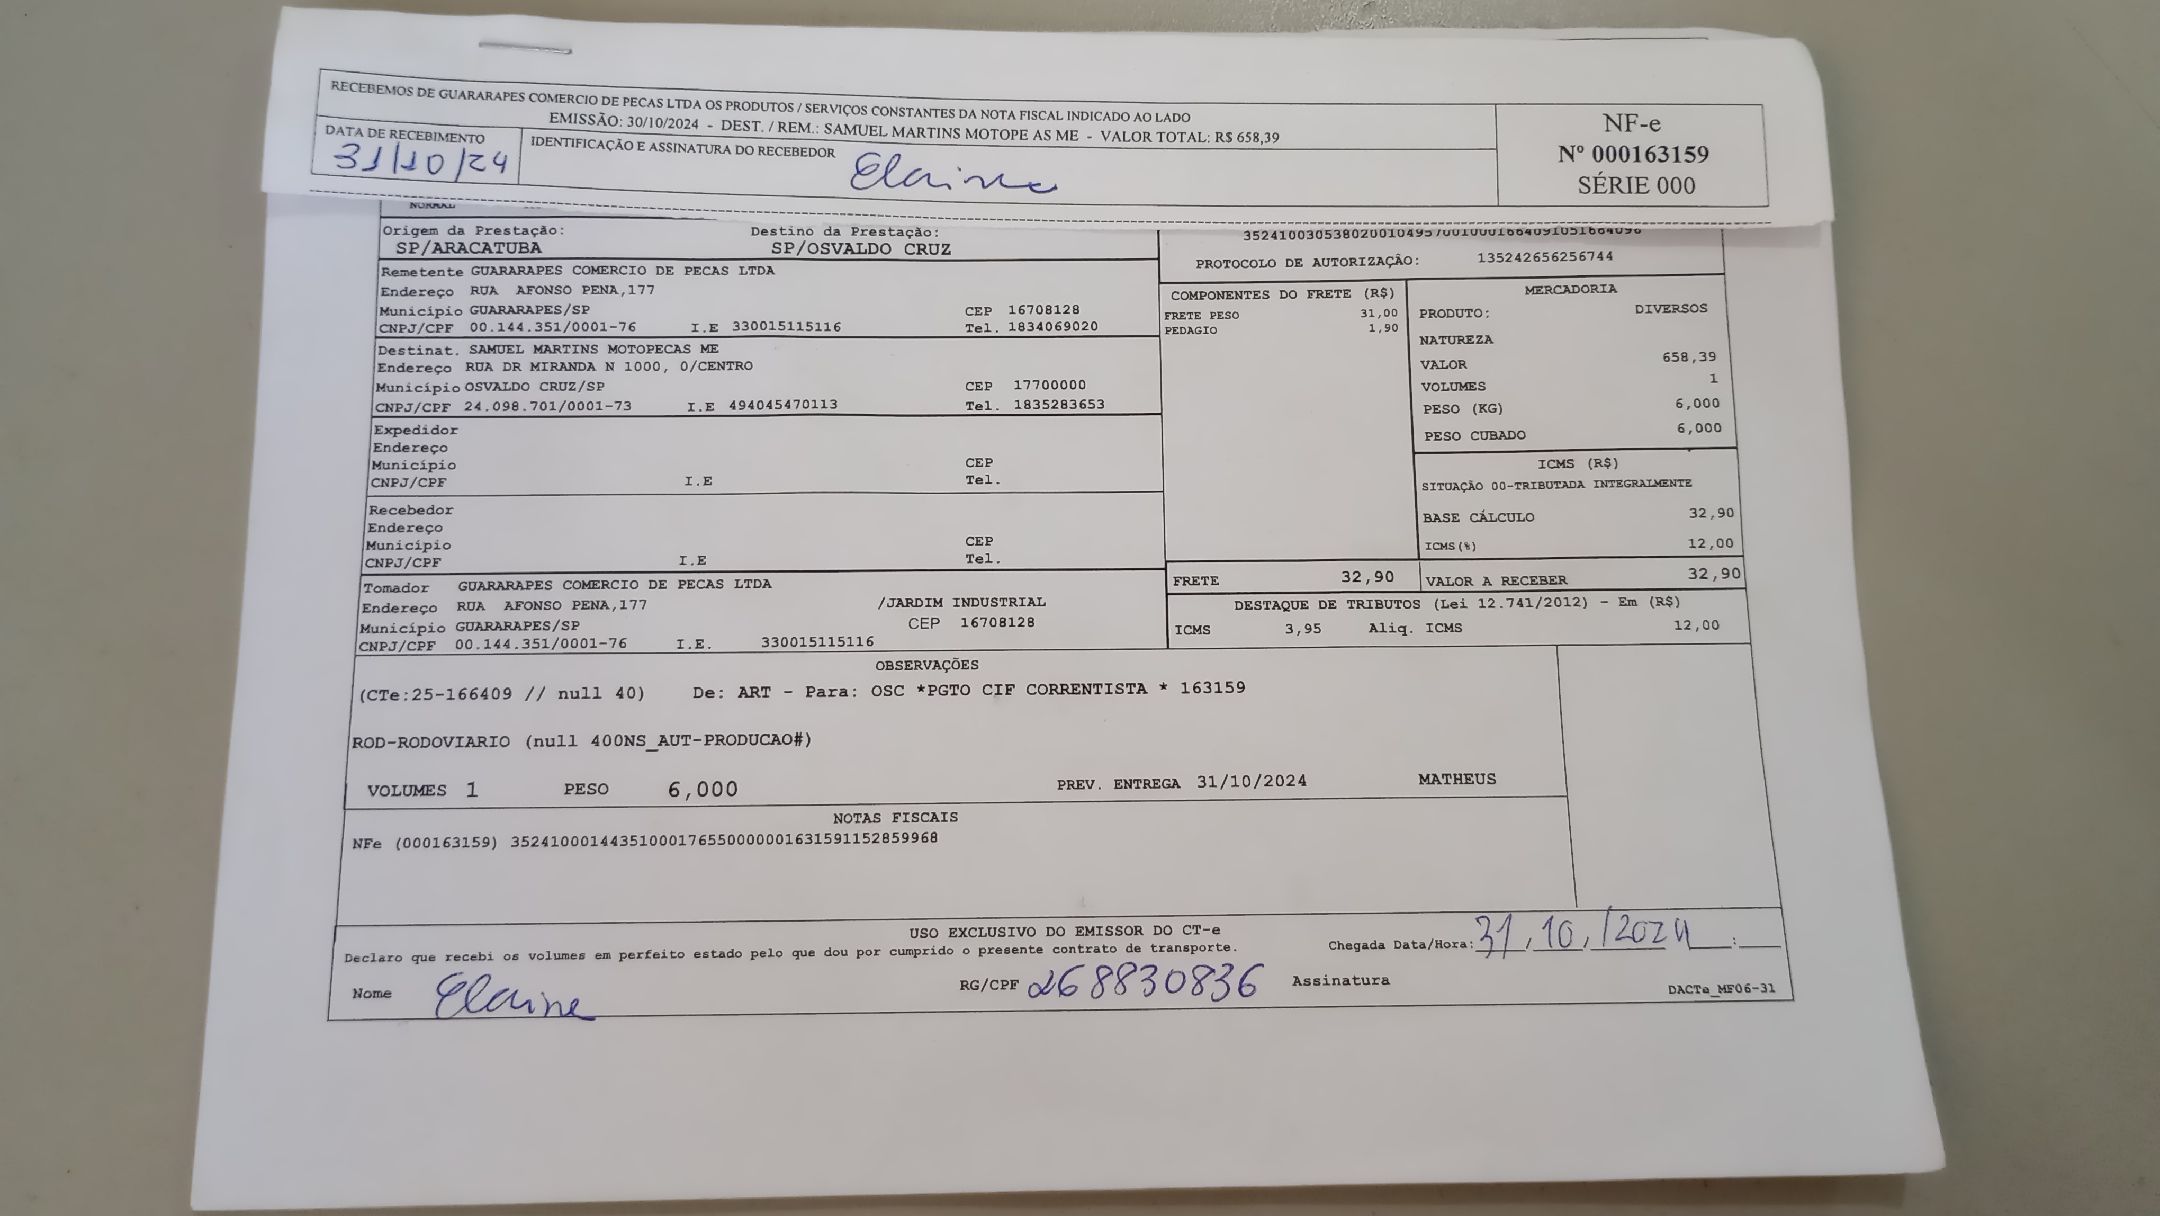 RECEBEMOS DE GUARARAPES COMERCIO DE PECAS LTDA OS PRODUTOS / SERVIÇOS CONSTANTES DA NOTA FISCAL INDICADO AO LADO
EMISSÃO: 30/10/2024 - DEST. / REM.: SAMUEL MARTINS MOTOPE AS ME - VALOR TOTAL: R$ 658,39
DATA DE RECEBIMENTO
31/10/24
IDENTIFICAÇÃO E ASSINATURA DO RECEBEDOR
Elaine
NF-e
Nº 000163159
SÉRIE 000
NORMAL
Origem da Prestação: Destino da Prestação:
SP/ARACATUBA SP/OSVALDO CRUZ
PROTOCOLO DE AUTORIZAÇÃO: 135242656256744
Remetente GUARARAPES COMERCIO DE PECAS LTDA
Endereço RUA AFONSO PENA,177
Município GUARARAPES/SP CEP 16708128
CNPJ/CPF 00.144.351/0001-76 I.E 330015115116 Tel. 1834069020
Destinat. SAMUEL MARTINS MOTOPECAS ME
Endereço RUA DR MIRANDA N 1000, 0/CENTRO
Município OSVALDO CRUZ/SP CEP 17700000
CNPJ/CPF 24.098.701/0001-73 I.E 494045470113 Tel. 1835283653
Expedidor
Endereço
Município CEP
CNPJ/CPF I.E Tel.
Recebedor
Endereço
Município CEP
CNPJ/CPF I.E Tel.
Tomador GUARARAPES COMERCIO DE PECAS LTDA
Endereço RUA AFONSO PENA,177 /JARDIM INDUSTRIAL
Município GUARARAPES/SP CEP 16708128
CNPJ/CPF 00.144.351/0001-76 I.E. 330015115116
COMPONENTES DO FRETE (R$)
FRETE PESO 31,00
PEDAGIO 1,90
MERCADORIA
PRODUTO: DIVERSOS
NATUREZA
VALOR 658,39
VOLUMES 1
PESO (KG) 6,000
PESO CUBADO 6,000
ICMS (R$)
SITUAÇÃO 00-TRIBUTADA INTEGRALMENTE
BASE CÁLCULO 32,90
ICMS(%) 12,00
FRETE 32,90 VALOR A RECEBER 32,90
DESTAQUE DE TRIBUTOS (Lei 12.741/2012) - Em (R$)
ICMS 3,95 Aliq. ICMS 12,00
OBSERVAÇÕES
(CTe:25-166409 // null 40) De: ART - Para: OSC *PGTO CIF CORRENTISTA * 163159
ROD-RODOVIARIO (null 400NS_AUT-PRODUCAO#)
VOLUMES 1 PESO 6,000 PREV. ENTREGA 31/10/2024 MATHEUS
NOTAS FISCAIS
NFe (000163159) 35241000144351000176550000001631591152859968
USO EXCLUSIVO DO EMISSOR DO CT-e
Declaro que recebi os volumes em perfeito estado pelo que dou por cumprido o presente contrato de transporte. Chegada Data/Hora: 31/10/2024 :
Nome Elaine RG/CPF 268830836 Assinatura
DACTe_MF06-31